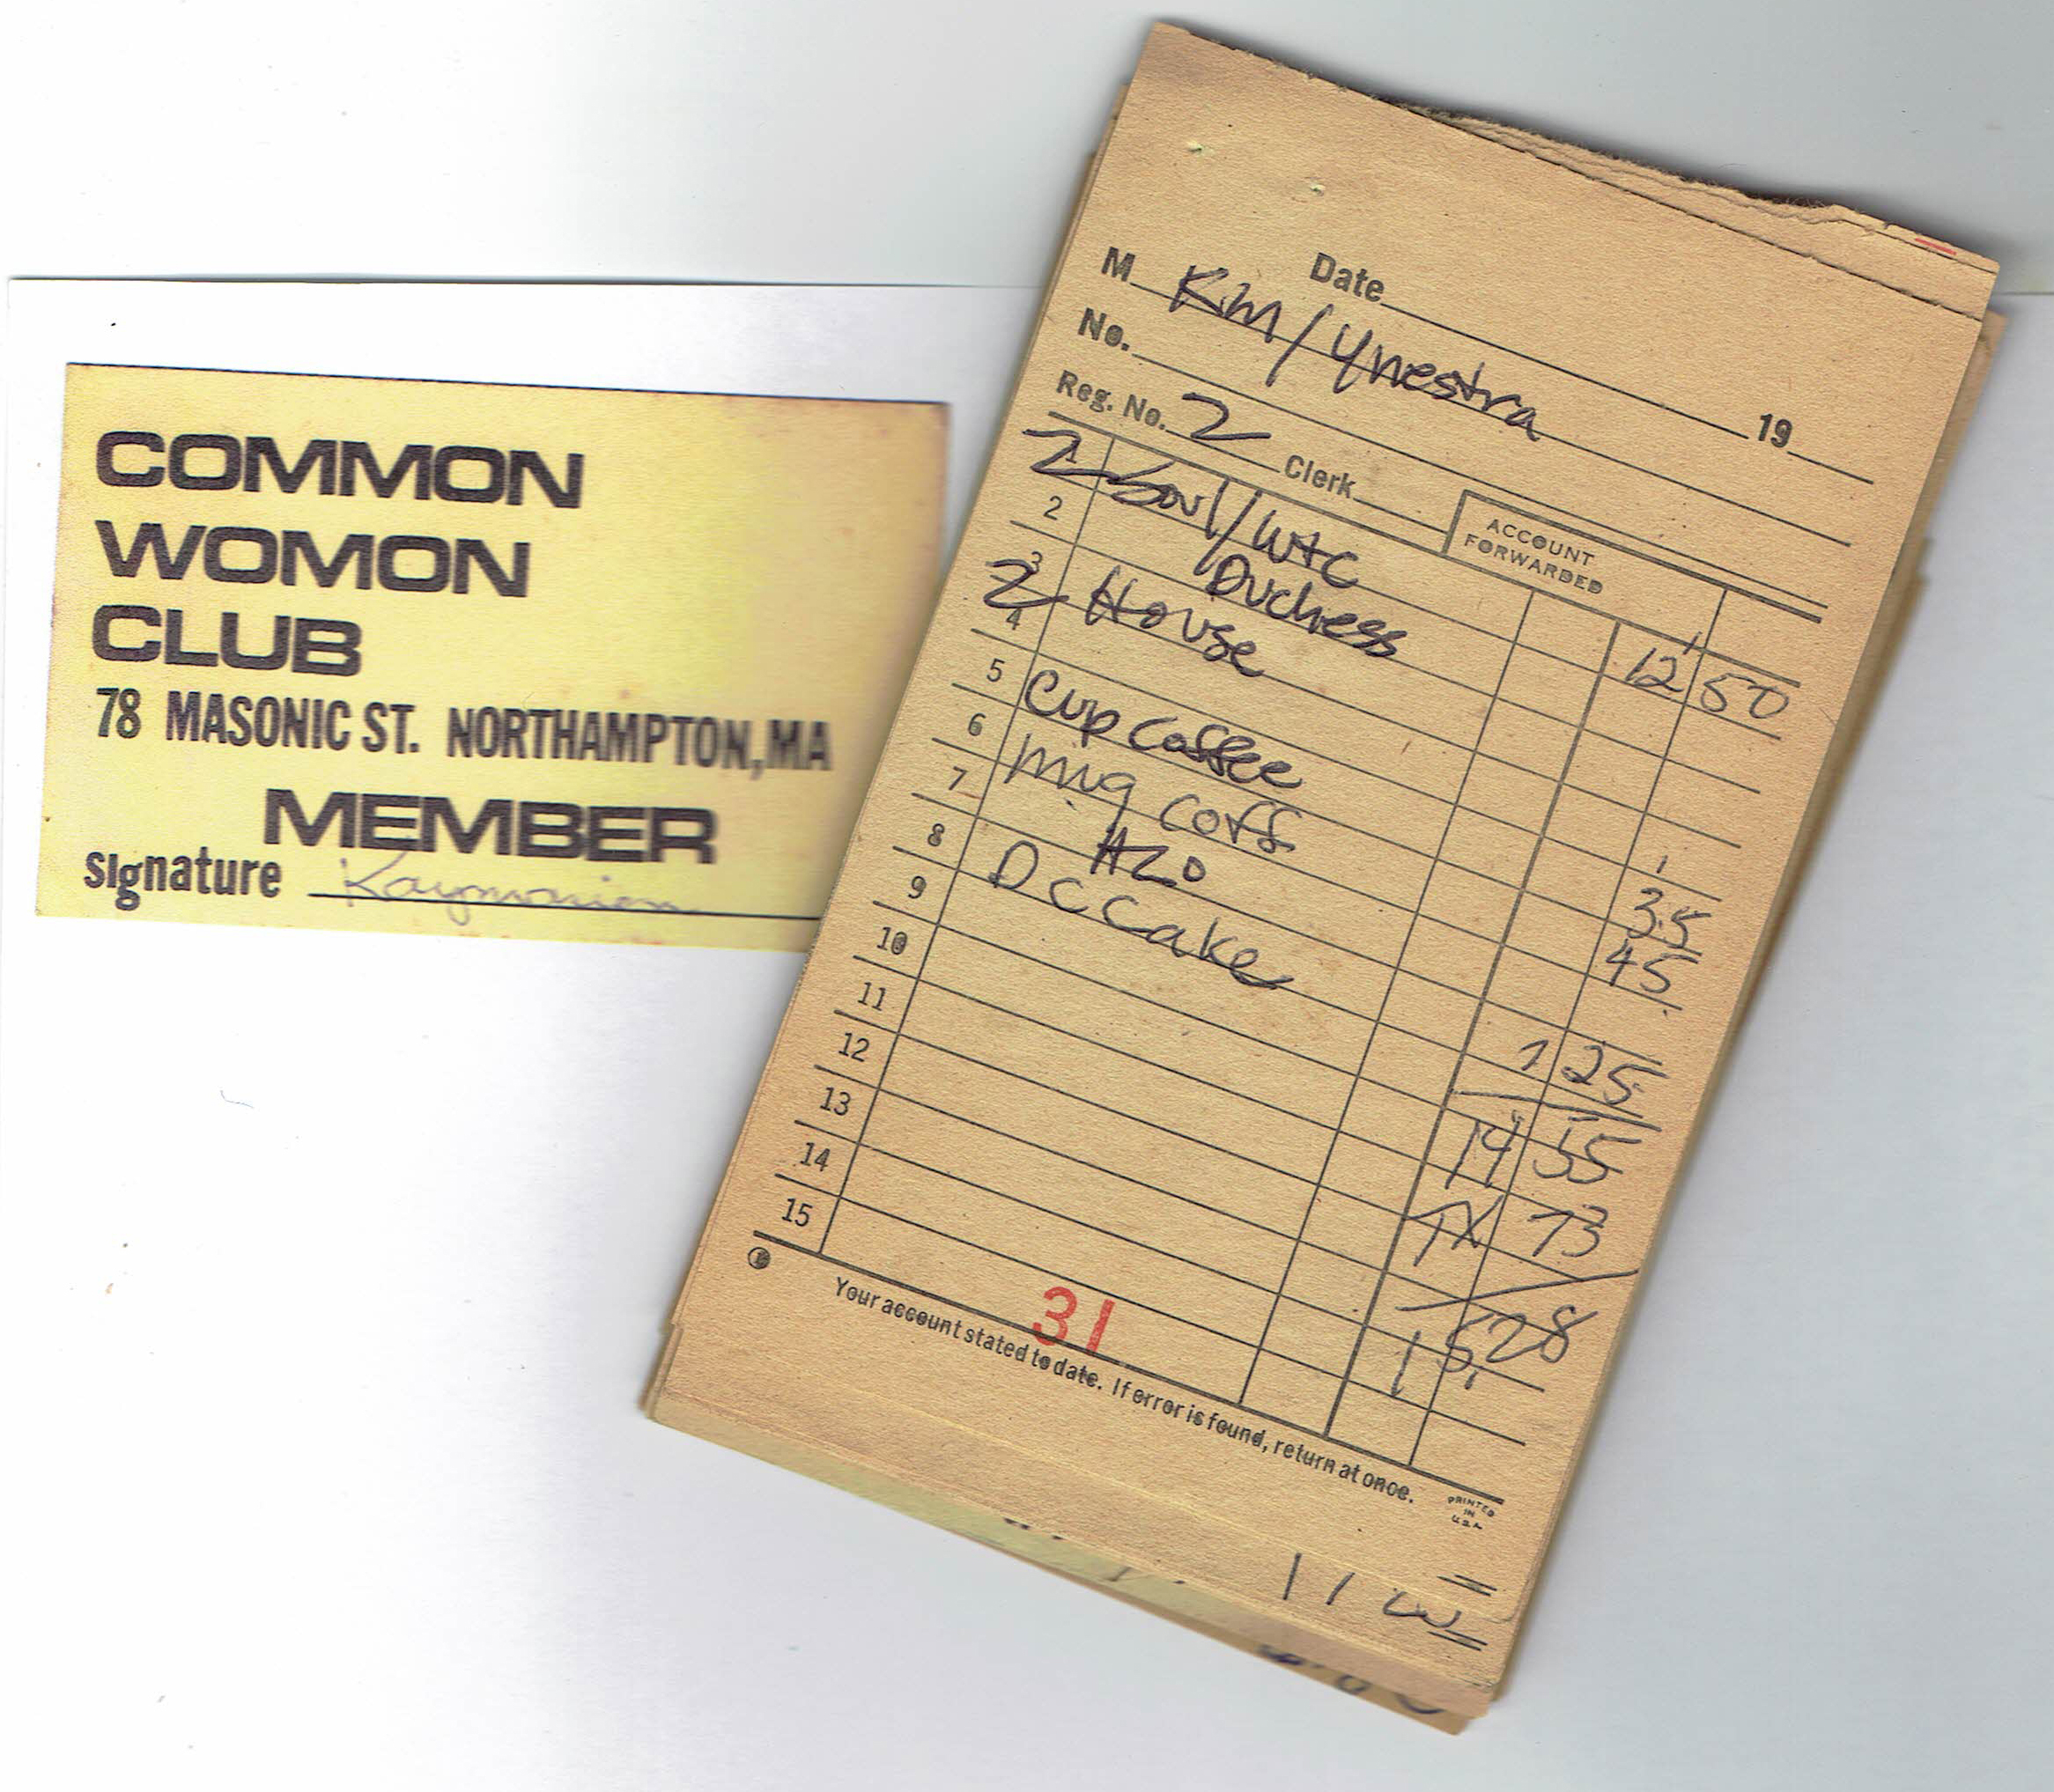 COMMON
WOMON
CLUB
78 MASONIC ST. NORTHAMPTON, MA
MEMBER
Signature Kaymarion
Date 19
M KM/Ynestra
No.
Reg. No. 2 Clerk
ACCOUNT
FORWARDED
1 2 Soul/WTC
2 Duchess 12 50
3 2 House
4
5 Cup Coffee 35
6 mug coff 45
7 H2O
8 DC Cake 1 25
9 14 55
10 TX 73
11
12 15,28
13
14
15
31
Your account stated to date. If error is found, return at once.
PRINTED
IN
U.S.A.